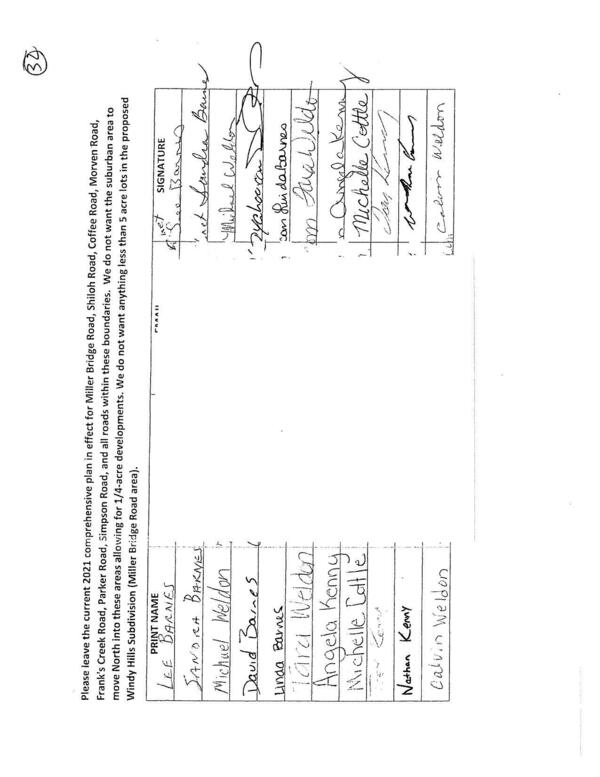 32
Please leave the current 2021 comprehensive plan in effect for Miller Bridge Road, Shiloh Road, Coffee Road, Morven Road,
Frank's Creek Road, Parker Road, Simpson Road, and all roads within these boundaries. We do not want the suburban area to
move North into these areas allowing for 1/4-acre developments. We do not want anything less than 5 acre lots in the proposed
Windy Hills Subdivision (Miller Bridge Road area).
PRINT NAME EMAIL SIGNATURE
LEE BARNES net Lee Barnes
SANDRA BARNES net Sandra Barnes
Michael Weldon Michael Weldon
David Barnes
Linda Barnes com Linda Barnes
Tara Weldon om Tara Weldon
Angela Kenny Angela Kenny
Michelle Cottle Michelle Cottle
Kenny
Nathan Kenny
Calvin Weldon Calvin Weldon